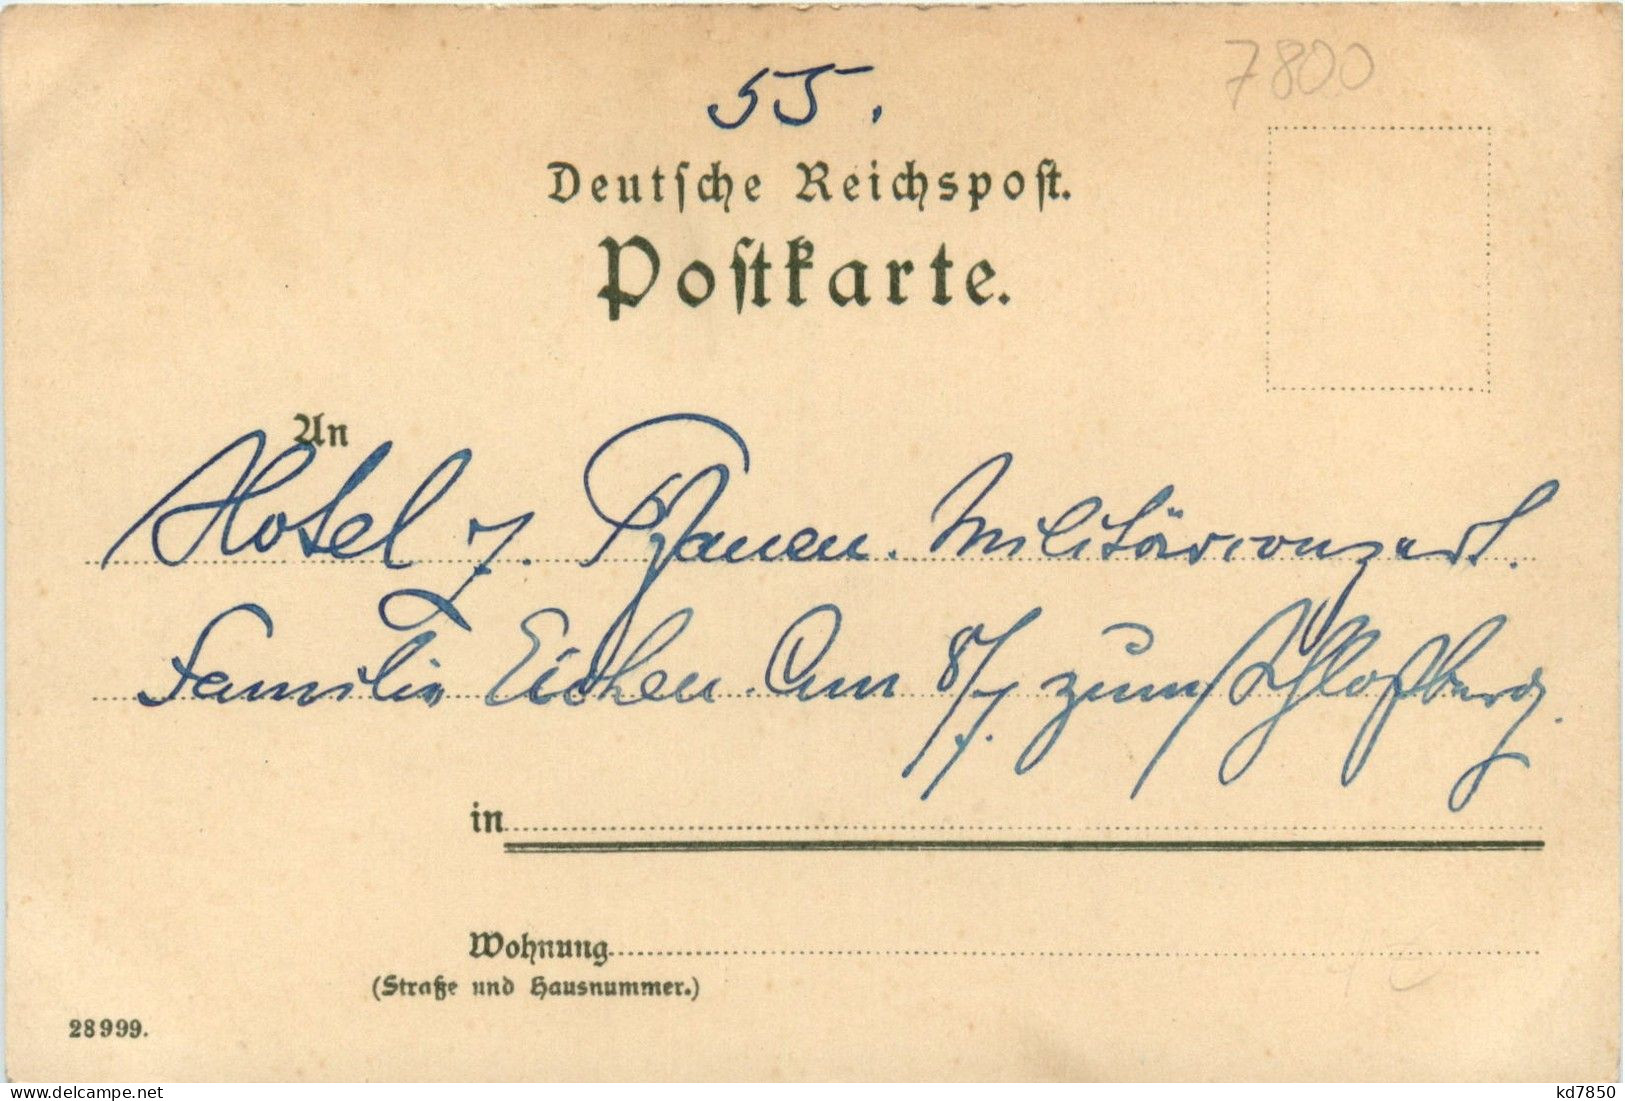 7800
55.
Deutsche Reichspost.
Postkarte.
An
Hotel z. Pfauen. Militärkonzert.
Familie Eichen. Am 8/7. zum Schloßberg.
in
Wohnung
(Straße und Hausnummer.)
28999.
www.delcampe.net
kd7850